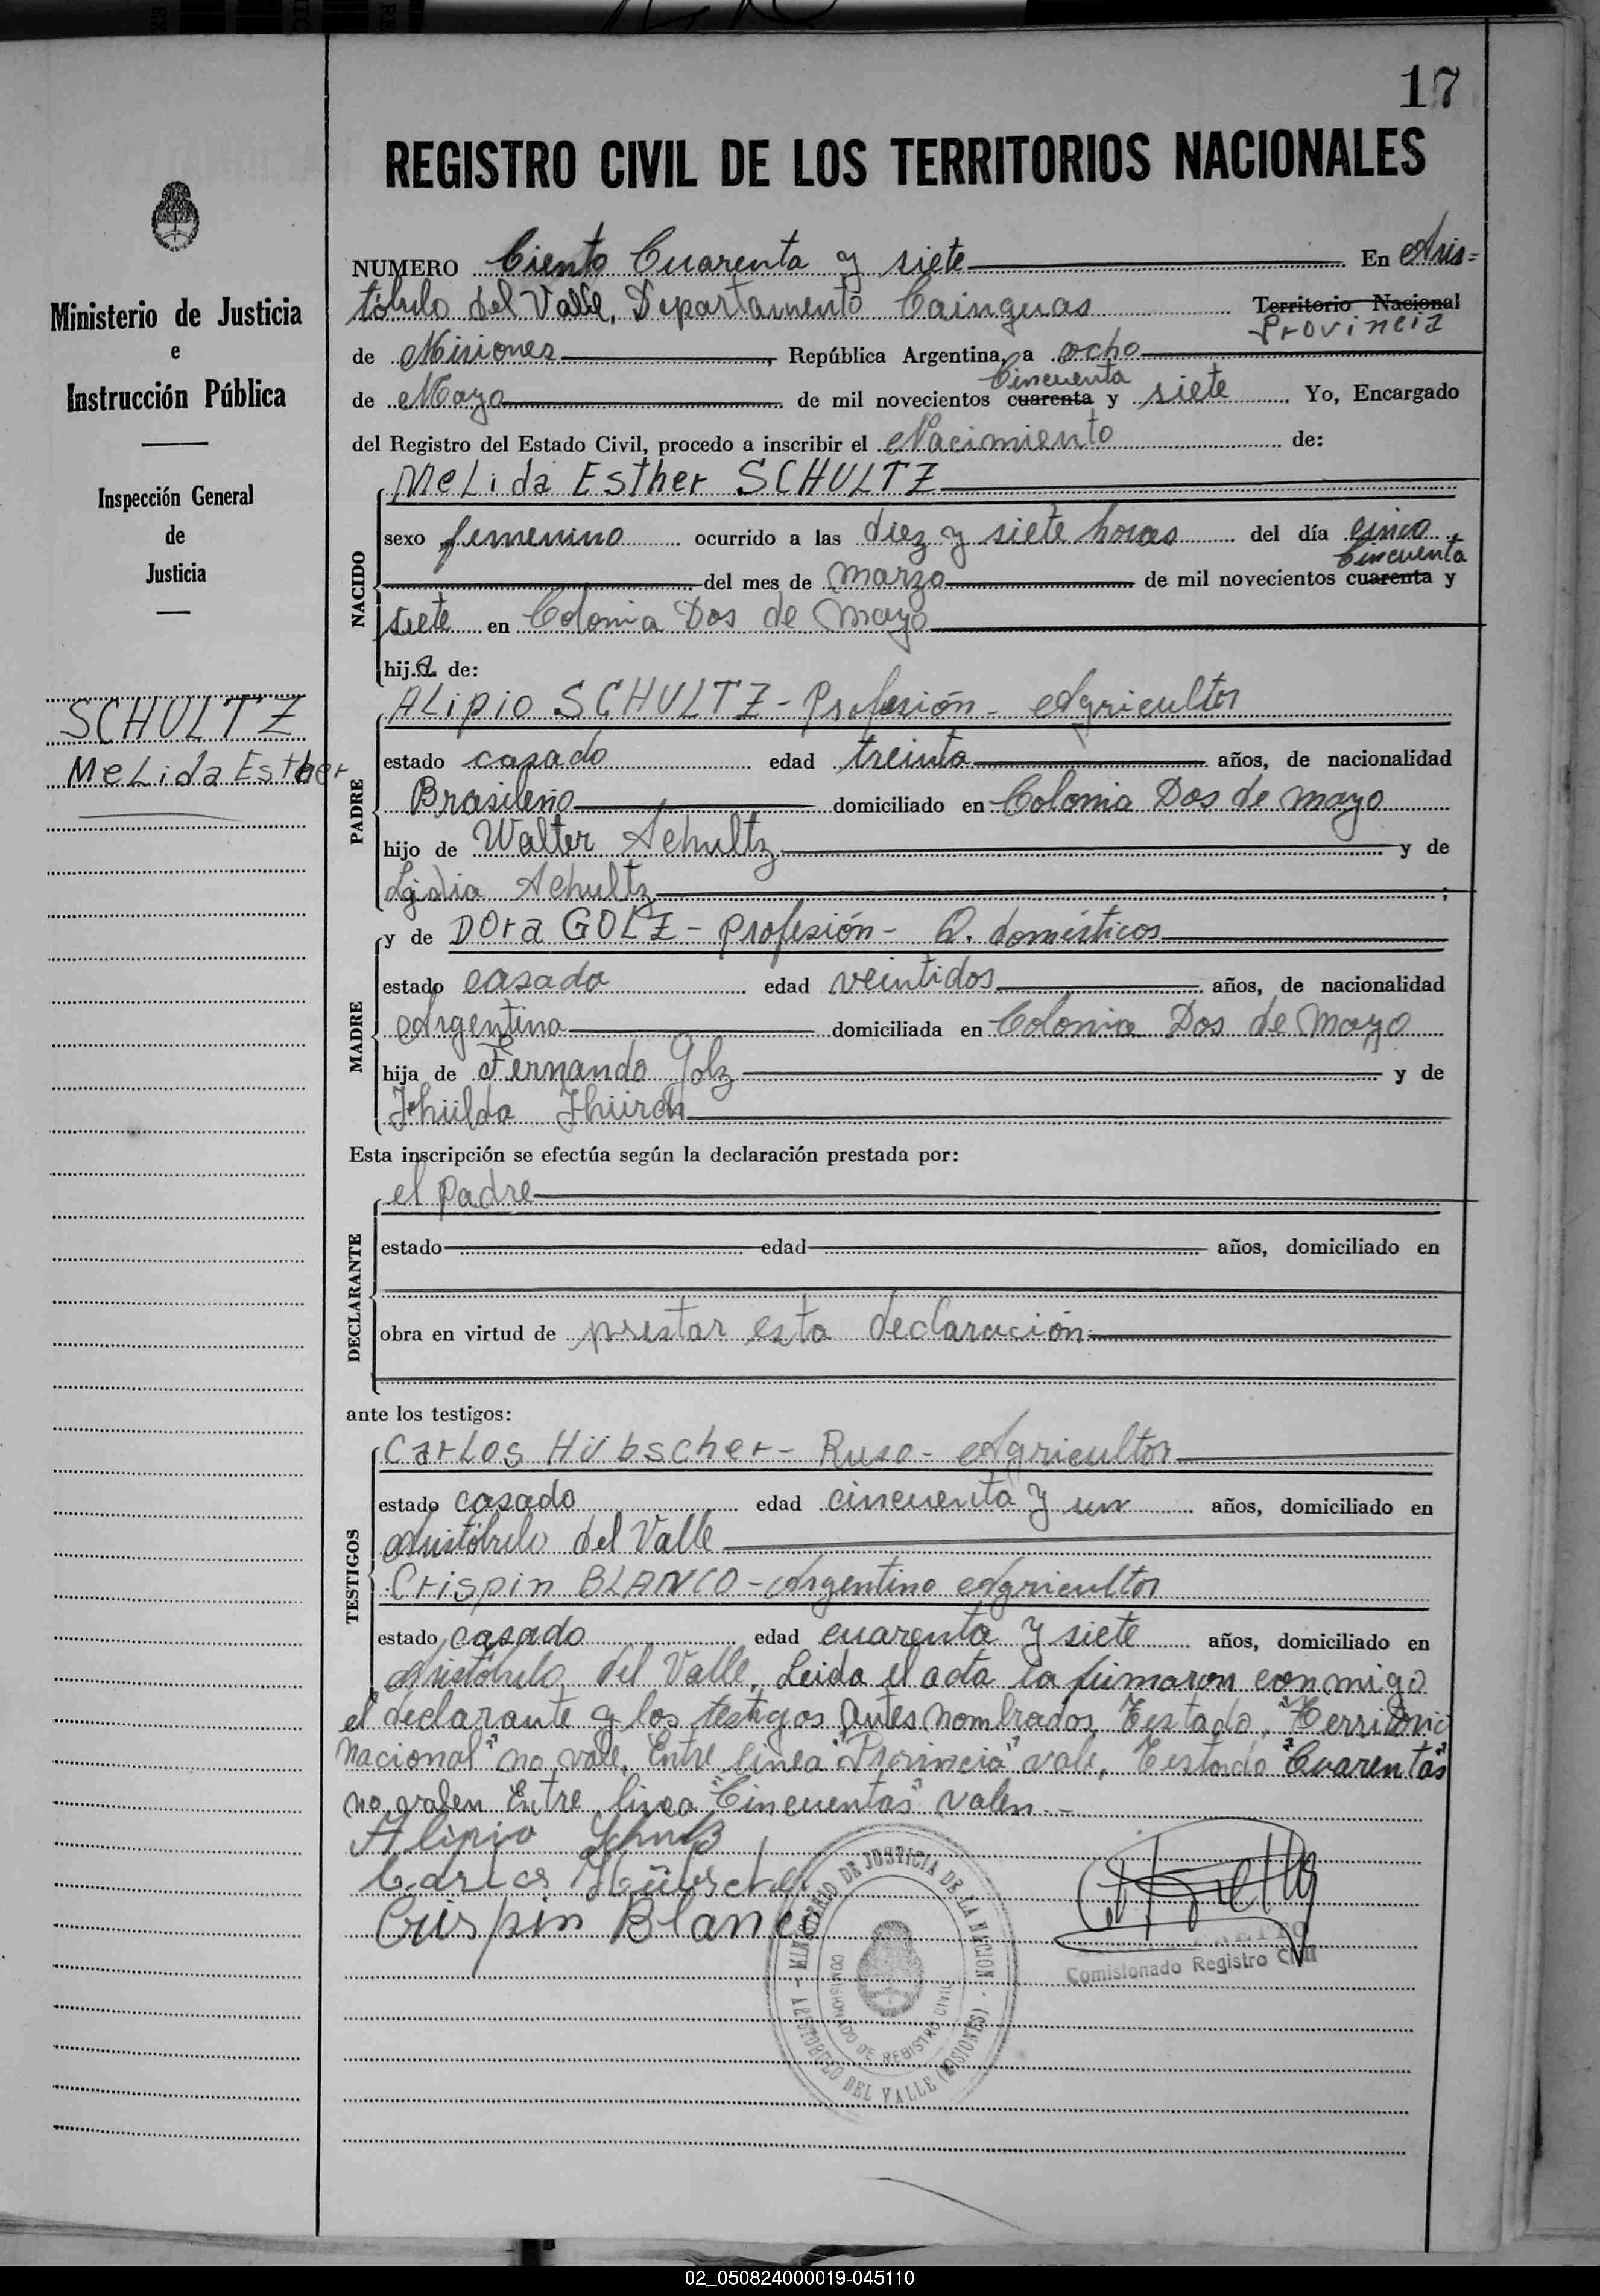 17
REGISTRO CIVIL DE LOS TERRITORIOS NACIONALES
NUMERO Ciento Cuarenta y siete En Aris=
tóbulo del Valle, Departamento Cainguas Territorio Nacional
Provincia
de Misiones, República Argentina, a ocho
Cincuenta
de Mayo de mil novecientos cuarenta y siete Yo, Encargado
del Registro del Estado Civil, procedo a inscribir el Nacimiento de:
NACIDO
Melida Esther SCHULTZ
sexo femenino ocurrido a las diez y siete horas del día cinco
Cincuenta
del mes de marzo de mil novecientos cuarenta y
siete en Colonia Dos de Mayo
hija de:
PADRE
Alipio SCHULTZ - Profesión - Agricultor
estado casado edad treinta años, de nacionalidad
Brasileño domiciliado en Colonia Dos de mayo
hijo de Walter Schultz y de
Lidia Schultz;
MADRE
y de Dora GOLZ - Profesión - Q. domésticos
estado casada edad veintidos años, de nacionalidad
Argentina domiciliada en Colonia Dos de Mayo
hija de Fernando Golz y de
Esta inscripción se efectúa según la declaración prestada por:
DECLARANTE
el padre
estado edad años, domiciliado en
obra en virtud de prestar esta declaración
ante los testigos:
TESTIGOS
Carlos Hübscher - Ruso - Agricultor
estado casado edad cincuenta y un años, domiciliado en
Aristóbulo del Valle
Crispin BLANCO - Argentino Agricultor
estado casado edad cuarenta y siete años, domiciliado en
Aristóbulo del Valle, Leida el acta la firmaron conmigo
el declarante y los testigos antes nombrados Testado, "Territorio
Nacional" no vale, Entre linea "Provincia" vale, Testado "Cuarentas"
no valen Entre linea "Cincuentas" valen.-
Alipio
Carlos Hübscher
Crispin Blanco
MINISTERIO DE JUSTICIA DE LA NACION - ARISTOBULO DEL VALLE (MISIONES) -
COMISIONADO DE REGISTRO CIVIL
Comisionado Registro Civil
Ministerio de Justicia
e
Instrucción Pública
Inspección General
de
Justicia
SCHULTZ
Melida Esther
02_050824000019-045110